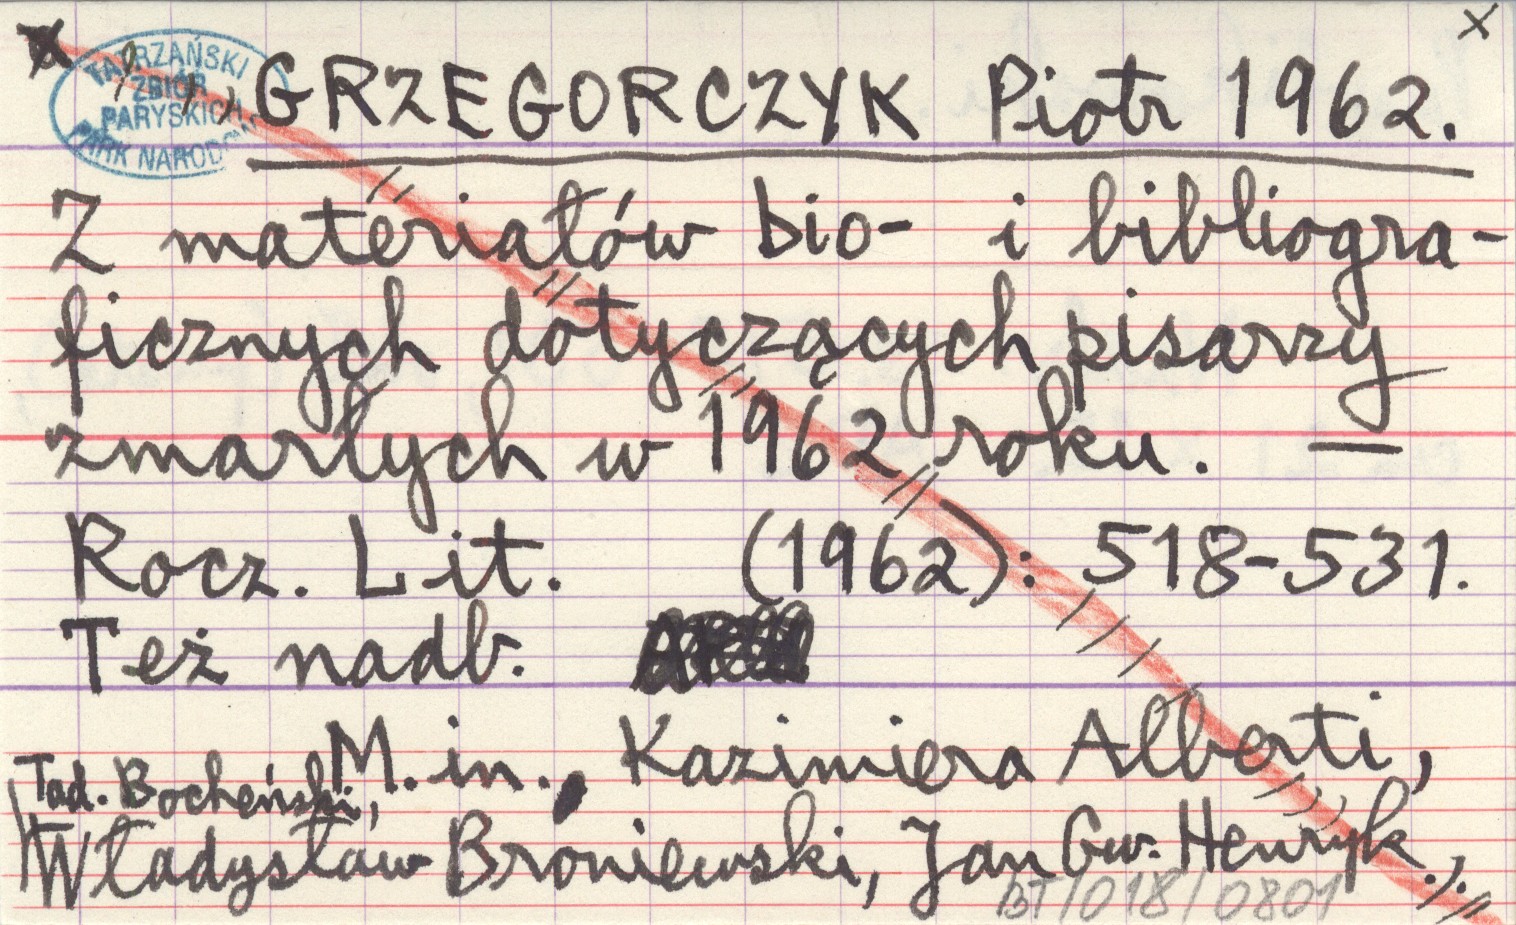 x
TATRZAŃSKI
ZBIÓR
PARYSKICH
PARK NARODO
GRZEGORCZYK Piotr 1962.
Z materiałów bio- i bibliogra-
ficznych dotyczących pisarzy
zmarłych w 1962 roku. —
Rocz. Lit. (1962): 518-531.
Też nadb.
M. in., Kazimiera Alberti,
Tad. Bocheński,
Władysław Broniewski, Jan Gw. Henryk,
BT/018/0801